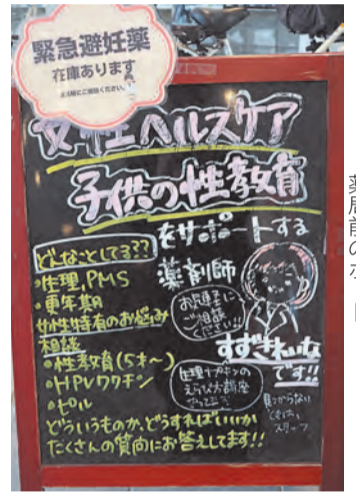 緊急避妊薬
在庫あります
女性ヘルスケア
子供の性教育
をサポートする
薬剤師
どんなことしてる??
・生理、PMS
・更年期
女性特有のお悩み
相談
・性教育(5才〜)
・HPVワクチン
・ピル
どういうものか、どうすればいいか
たくさんの質問にお答えしてます!!
お気軽に
ご相談
ください!!
すずきれいな
です!!
生理ナプキンの
えらび方講座
スタッフ
薬局前の